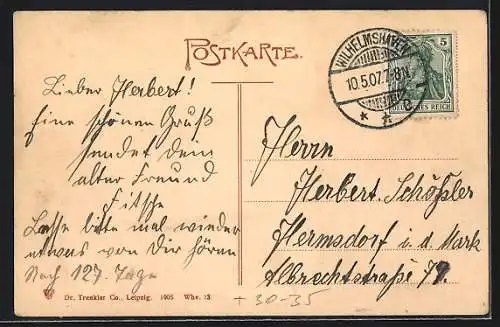 POSTKARTE.
WILHELMSHAVEN
10.5.07.7-8N
5
DEUTSCHES REICH
Lieber Herbert!
Eine schönen Gruß
sendet dein
alter Freund
Fitsche
Lasse bitte mal wieder
etwas von Dir hören
Noch 127. Tage
Herrn
Herbert Schößler
Hermsdorf i. d. Mark
Albrechtstraße
Dr. Trenkler Co., Leipzig. 1905 Whv. 13
+ 30-35